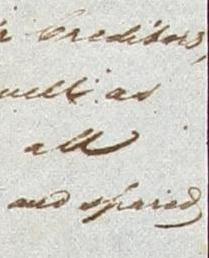 Creditors,
well as
all
and spared